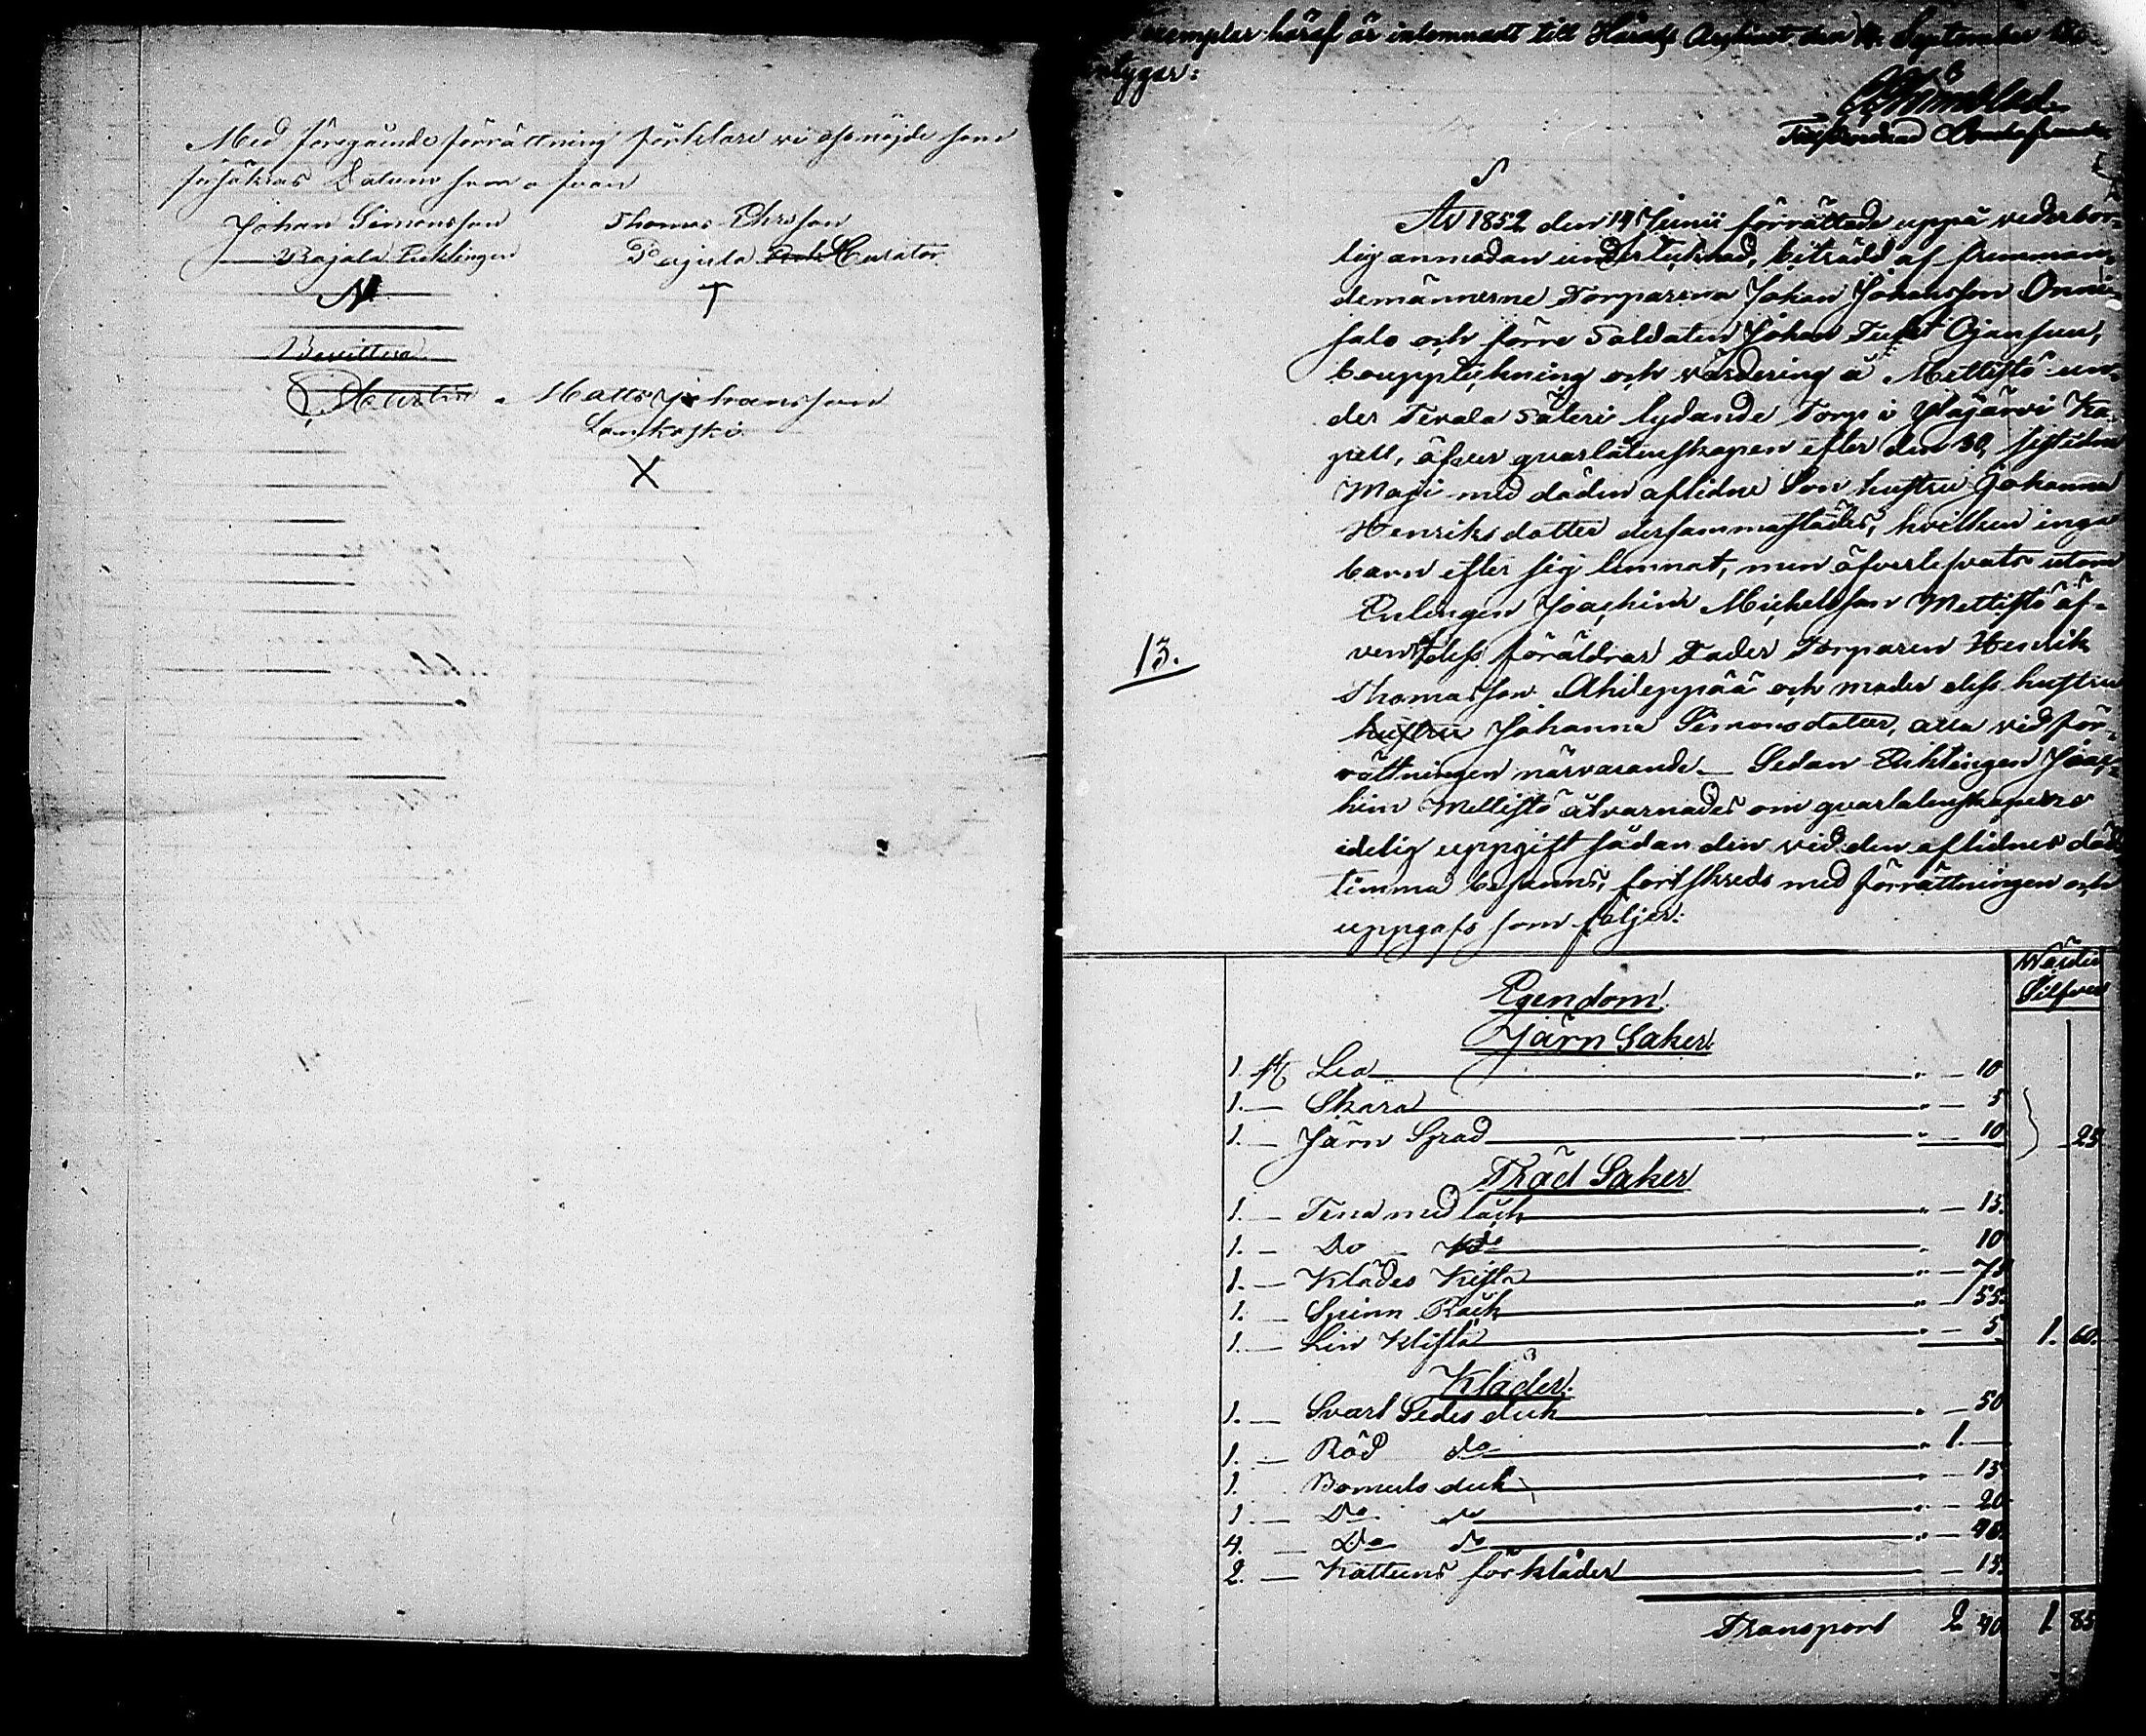 Med föregående förrättning förklare vi oss nöjde som
försäkras Datum som ofvan
Johan Simonsson Thomas
Rajala Enklingen Curator
Matts Johansson
Lankoski
X
exemplar häraf är inlemnadt till Härads Archivet den 14 September
intygar:
Tillförordnad
År 1852 den 19 Junii förrättade uppå vederbör-
lig anmodan undertecknad, biträdd af fremman-
demännerne Torparena Johan Johansson Onni-
salo och förre Soldaten Johan Ojansuu,
bouppteckning och värdering å Mettistö un-
der Tevala Säteri lydande Torp i Ylajärvi Ka-
pell, öfver qvarlåtenskapen efter den 30 sistedne
Maji med döden aflidne Son hustru Johanna
Henriksdotter dersammastädes, hvilken inga
barn efter sig lemnat, men öfverlefvats utom
Enklingen Joachim Michelsson Mettistö äf-
ven dess föräldrar Fader Torparen Henrik
Thomasson Ahdeppää och moder dess hustru
hustru Johanna Simonsdotter, alla vid för-
rättningen närvarande. Sedan Enklingen Joac-
him Mettistö åtvarnades om qvarlåtenskapens
redelig uppgift sådan den vid den aflidnes döds
timma befanns, fortskreds med förrättningen och
uppgafs som följer:
13.
Wärde
Silfver
Egendom.
Järn Saker.
1. st Lia " — 10
1. — Skära " — 5
1. — Järn Spad " — 10 25
Träd Saker
1. — Tena med låck " — 15.
1. — Do do " 10
1. — Klädes Kista " — 75
1. — Spinn Råck " — 55.
1. — Lin Klifta " — 5 1. 60.
Kläder.
1. — Svart Sides duk " — 50
1. — Röd do " 1. —
1. Bomuls duk " — 15
1. — Do do " — 20
4. — Do do " — 40
2. — Kattuns förkläder — 15.
Transport 2 40 1 85